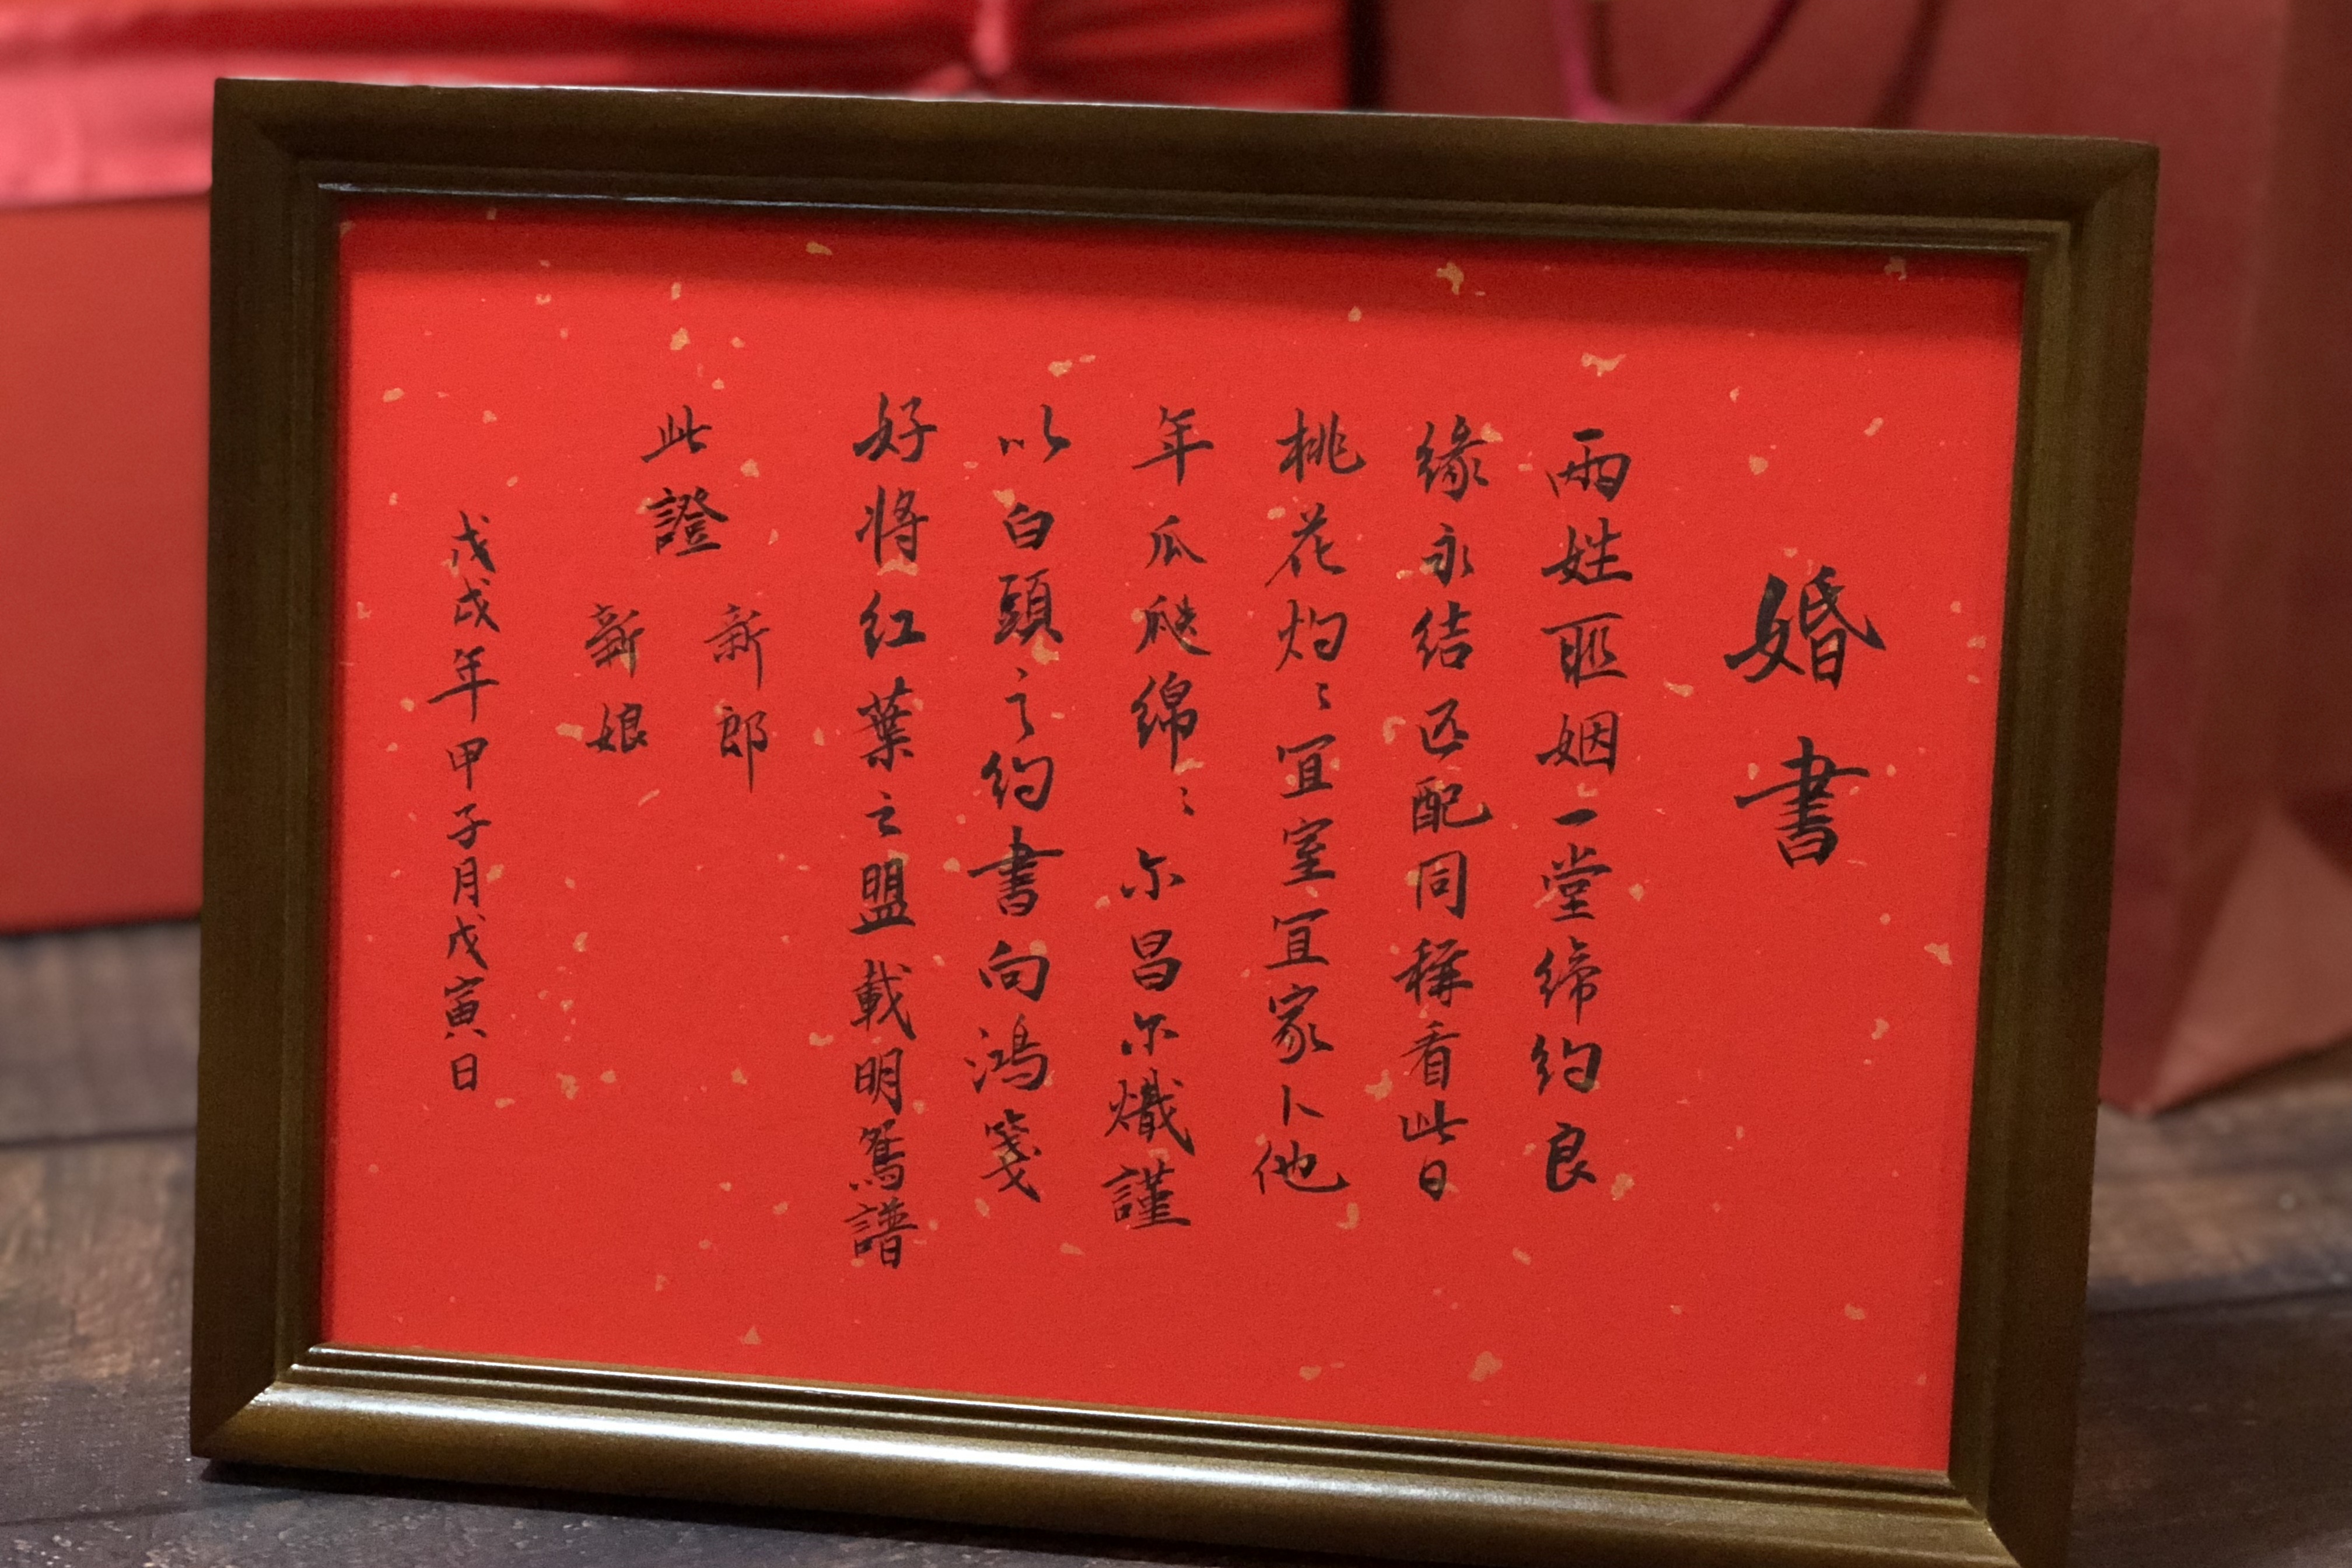 婚書
兩姓聯姻一堂締約良
緣永結匹配同稱看此日
桃花灼〻宜室宜家卜他
年瓜瓞綿〻尔昌尔熾謹
以白頭之約書向鴻箋
好將红葉之盟載明鴛譜
此證
新郎
新娘
戊戌年甲子月戊寅日